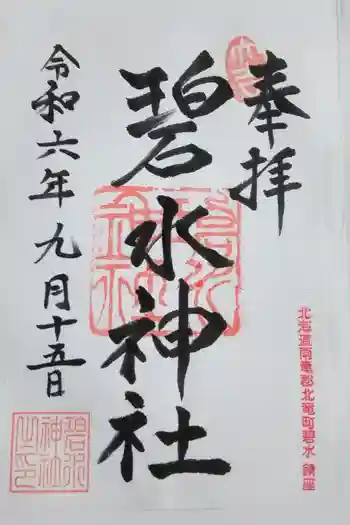 奉拝
碧水神社
令和六年九月十五日
北海道雨竜郡北竜町碧水 鎮座
碧水
神社
之印